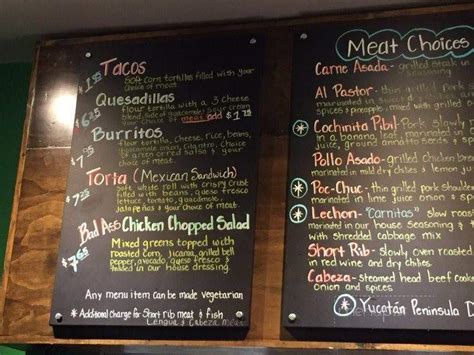 Tacos
Soft corn tortillas filled with your
choice of meat
Quesadillas
flour tortilla with a 3 Cheese
blend and your choice of salsa
your choice of meat add $1.75
Burritos
flour tortilla, Cheese, rice, beans,
guacamole, onion, cilantro, Choice
of green or red salsa & your
choice of meat.
Torta (Mexican Sandwich)
Soft white roll with crispy crust
filled with beans, queso fresco
lettuce, tomato, guacamole,
jalapeños & your choice of meat
Bad Ass Chicken Chopped Salad
Mixed greens topped with
roasted corn, jicama, grilled bell
pepper, avocado, queso fresco &
tossed in our house dressing.
Any menu item can be made vegetarian
* Additional Charge for Short rib meat & fish
Lengua & Cabeza
Meat Choices
Carne Asada - grilled steak in
seasoning
Al Pastor - thin grilled pork
marinated in
spices & pineapple, mixed with grilled
Cochinita Pibil - Pork slowly
in a banana, leaf marinated in
juice, ground annatto seeds &
Pollo Asado - grilled chicken
marinated in lime juice and spices
Poc-Chuc - thin grilled pork
in lime juice onion and spices
Lechon - "Carnitas" slow roas
marinated in our house seasoning &
with shredded cabbage mix
Short Rib - Slowly oven roasted
in red wine and dry chiles
Cabeza - steamed head beef cooked
onion and spices
Yucatán Peninsula D